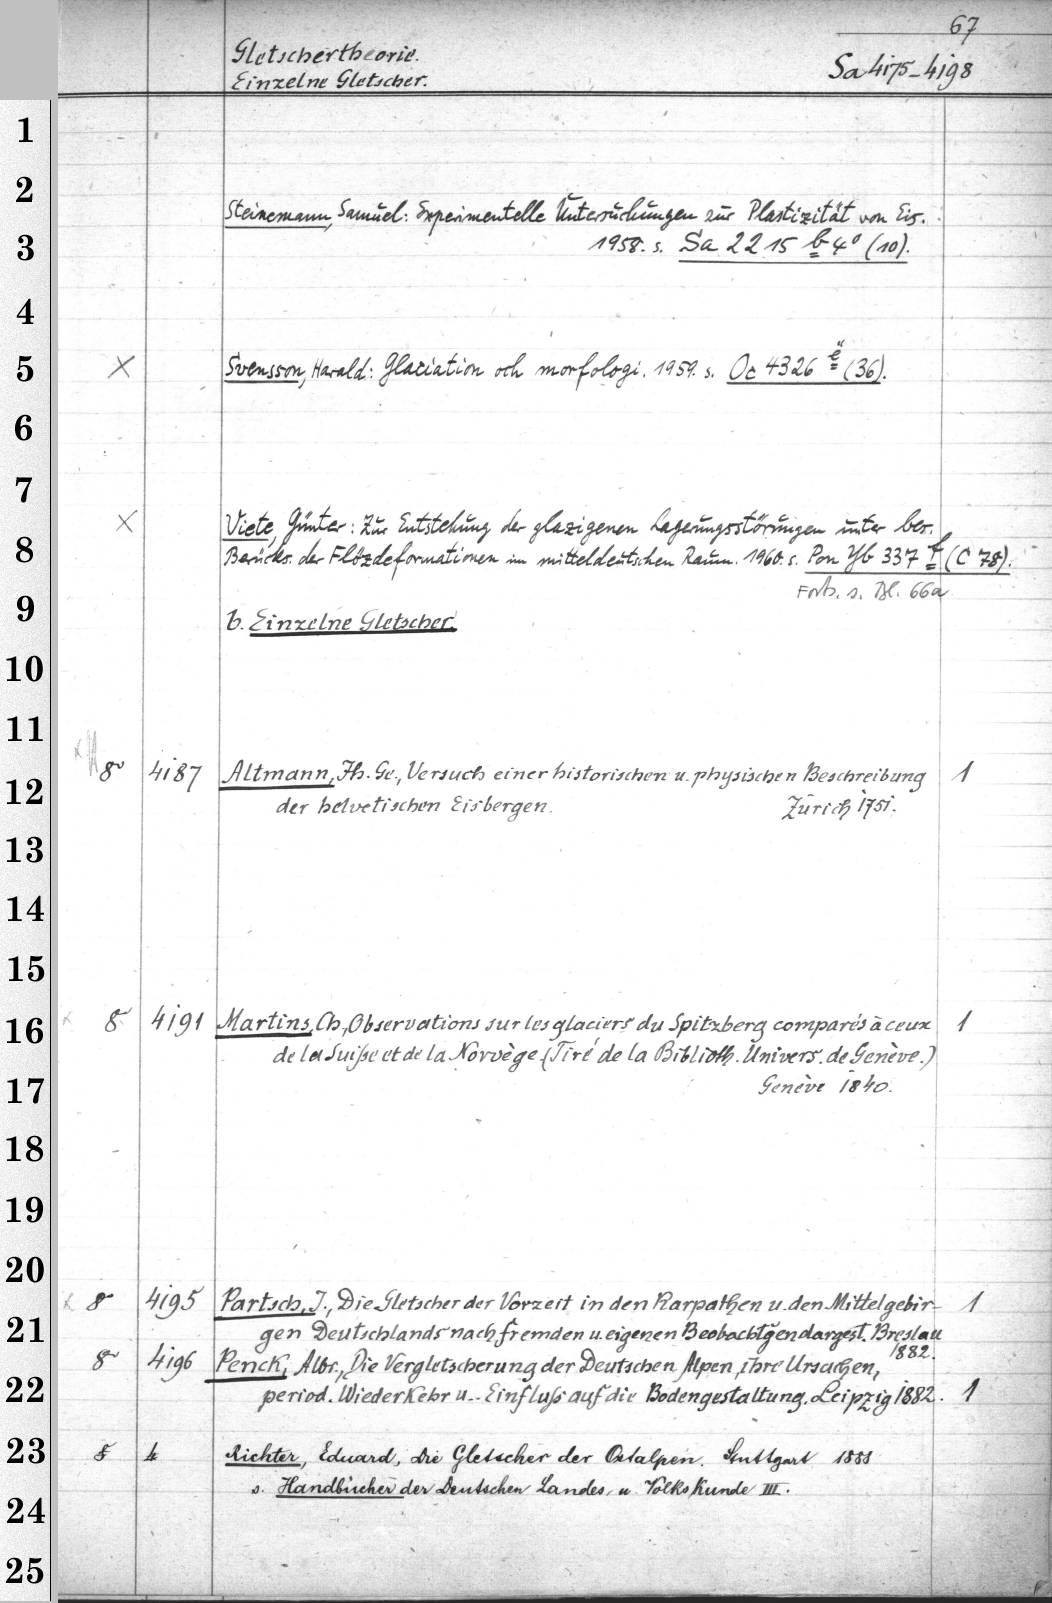 67
Gletschertheorie.
Einzelne Gletscher.
Sa 4175-4198
1
2
Steinemann, Samuel: Experimentelle Untersuchungen zur Plastizität von Eis.
3
1958. s. Sa 2215 b 4° (10).
4
5
X Svensson, Harald: Glaciation och morfologi. 1959. s. Oc 4326 ë (36).
6
7
X Viete, Günter: Zur Entstehung der glazigenen Lagerungsstörungen unter bes.
8
Berücks. der Flözdeformationen im mitteldeutschen Raum. 1960. s. Pon Yb 337 f (C 78).
Forts. s. Bl. 66a
9
b. Einzelne Gletscher.
10
11
8° 4187 Altmann, Jh. Ge., Versuch einer historischen u. physischen Beschreibung 1
12
der helvetischen Eisbergen. Zürich 1751.
13
14
15
16
8° 4191 Martins, Ch., Observations sur les glaciers du Spitzberg comparés à ceux 1
de la Suiße et de la Norvège (Tiré de la Biblioth. Univers. de Genève.)
17
Genève 1840.
18
19
20
8° 4195 Partsch, J., Die Gletscher der Vorzeit in den Karpathen u. den Mittelgebir- 1
21
gen Deutschlands nach fremden u. eigenen Beobachtgen dargest. Breslau
1882.
8° 4196 Penck, Albr., Die Vergletscherung der Deutschen Alpen, ihre Ursachen,
22
period. Wiederkehr u. Einfluß auf die Bodengestaltung. Leipzig 1882. 1
23
8 4 Richter, Eduard, Die Gletscher der Ostalpen. Stuttgart 1888
s. Handbücher der Deutschen Landes u. Volkskunde III.
24
25